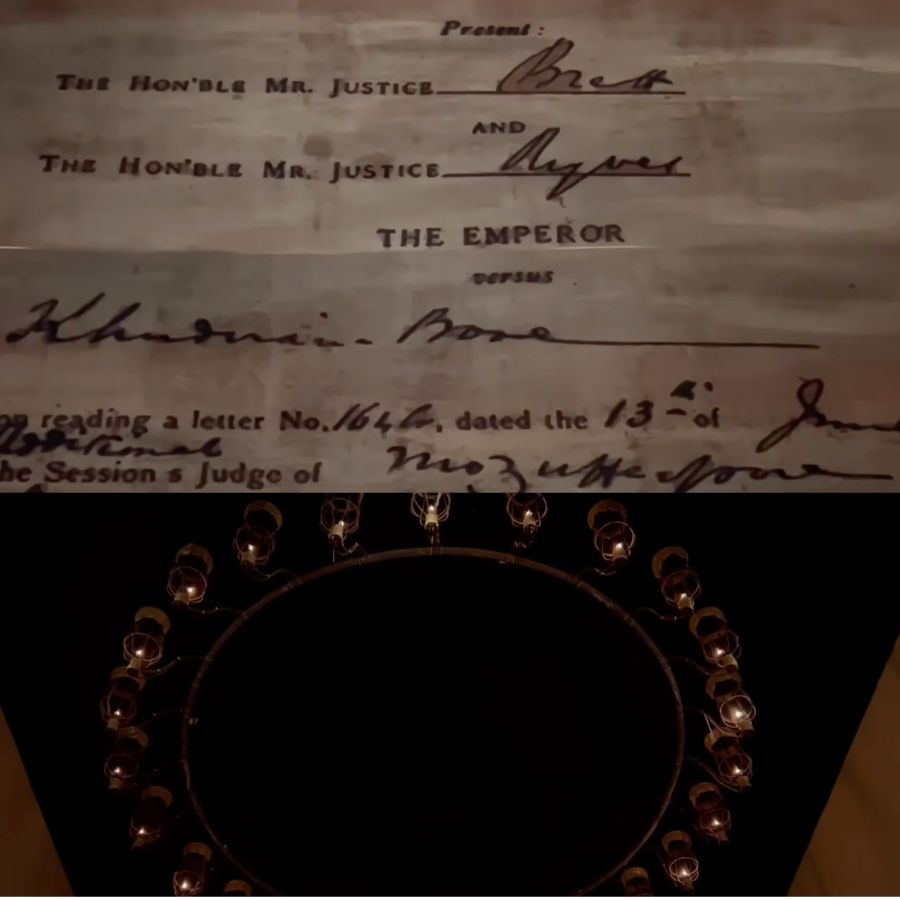 Present:
THE HON'BLE MR. JUSTICE Brett
AND
THE HON'BLE MR. JUSTICE Ryves
THE EMPEROR
versus
Khudiram Bose
on reading a letter No. 1644, dated the 13th of June
Additional
the Sessions Judge of Mozufferpore